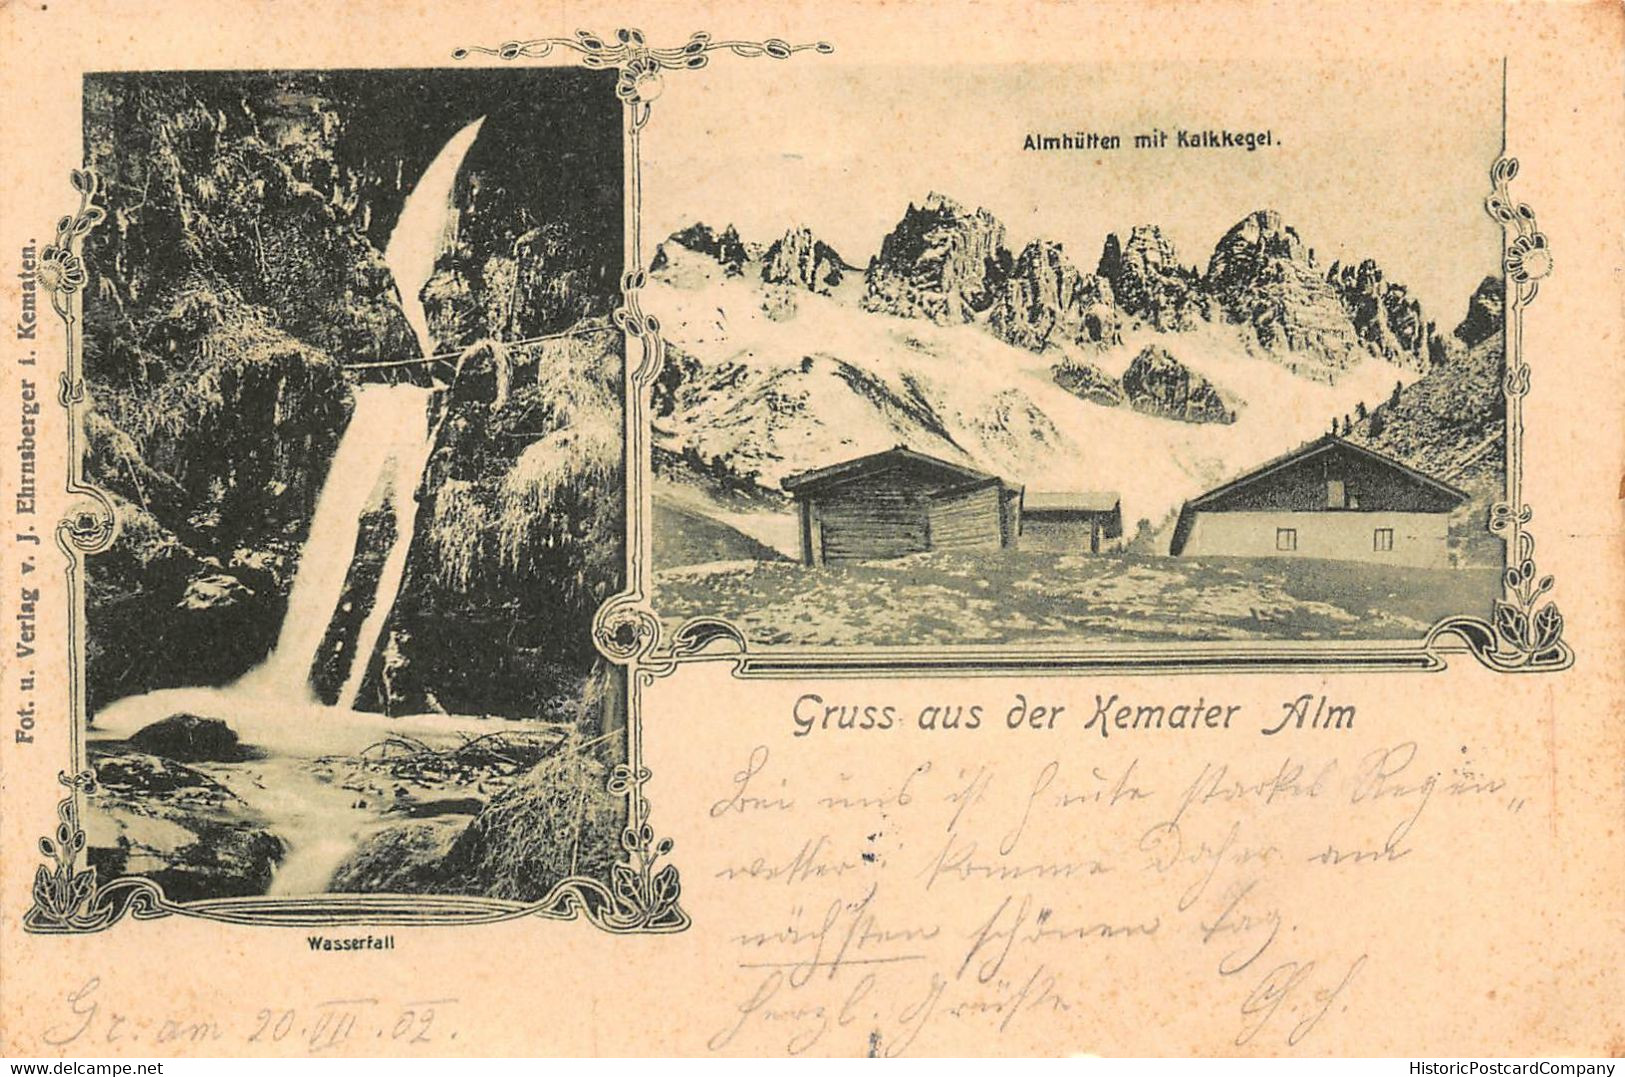 Almhütten mit Kalkkegel.
Fot. u. Verlag v. J. Ehrnsberger i. Kematen.
Gruss aus der Kemater Alm
Bei uns ist heute starkes Regen„
wetter komme daher am
nächsten schönen Tag.
Wasserfall
herzl. Grüße
Gr. am 20.VII.02.
HistoricPostcardCompany